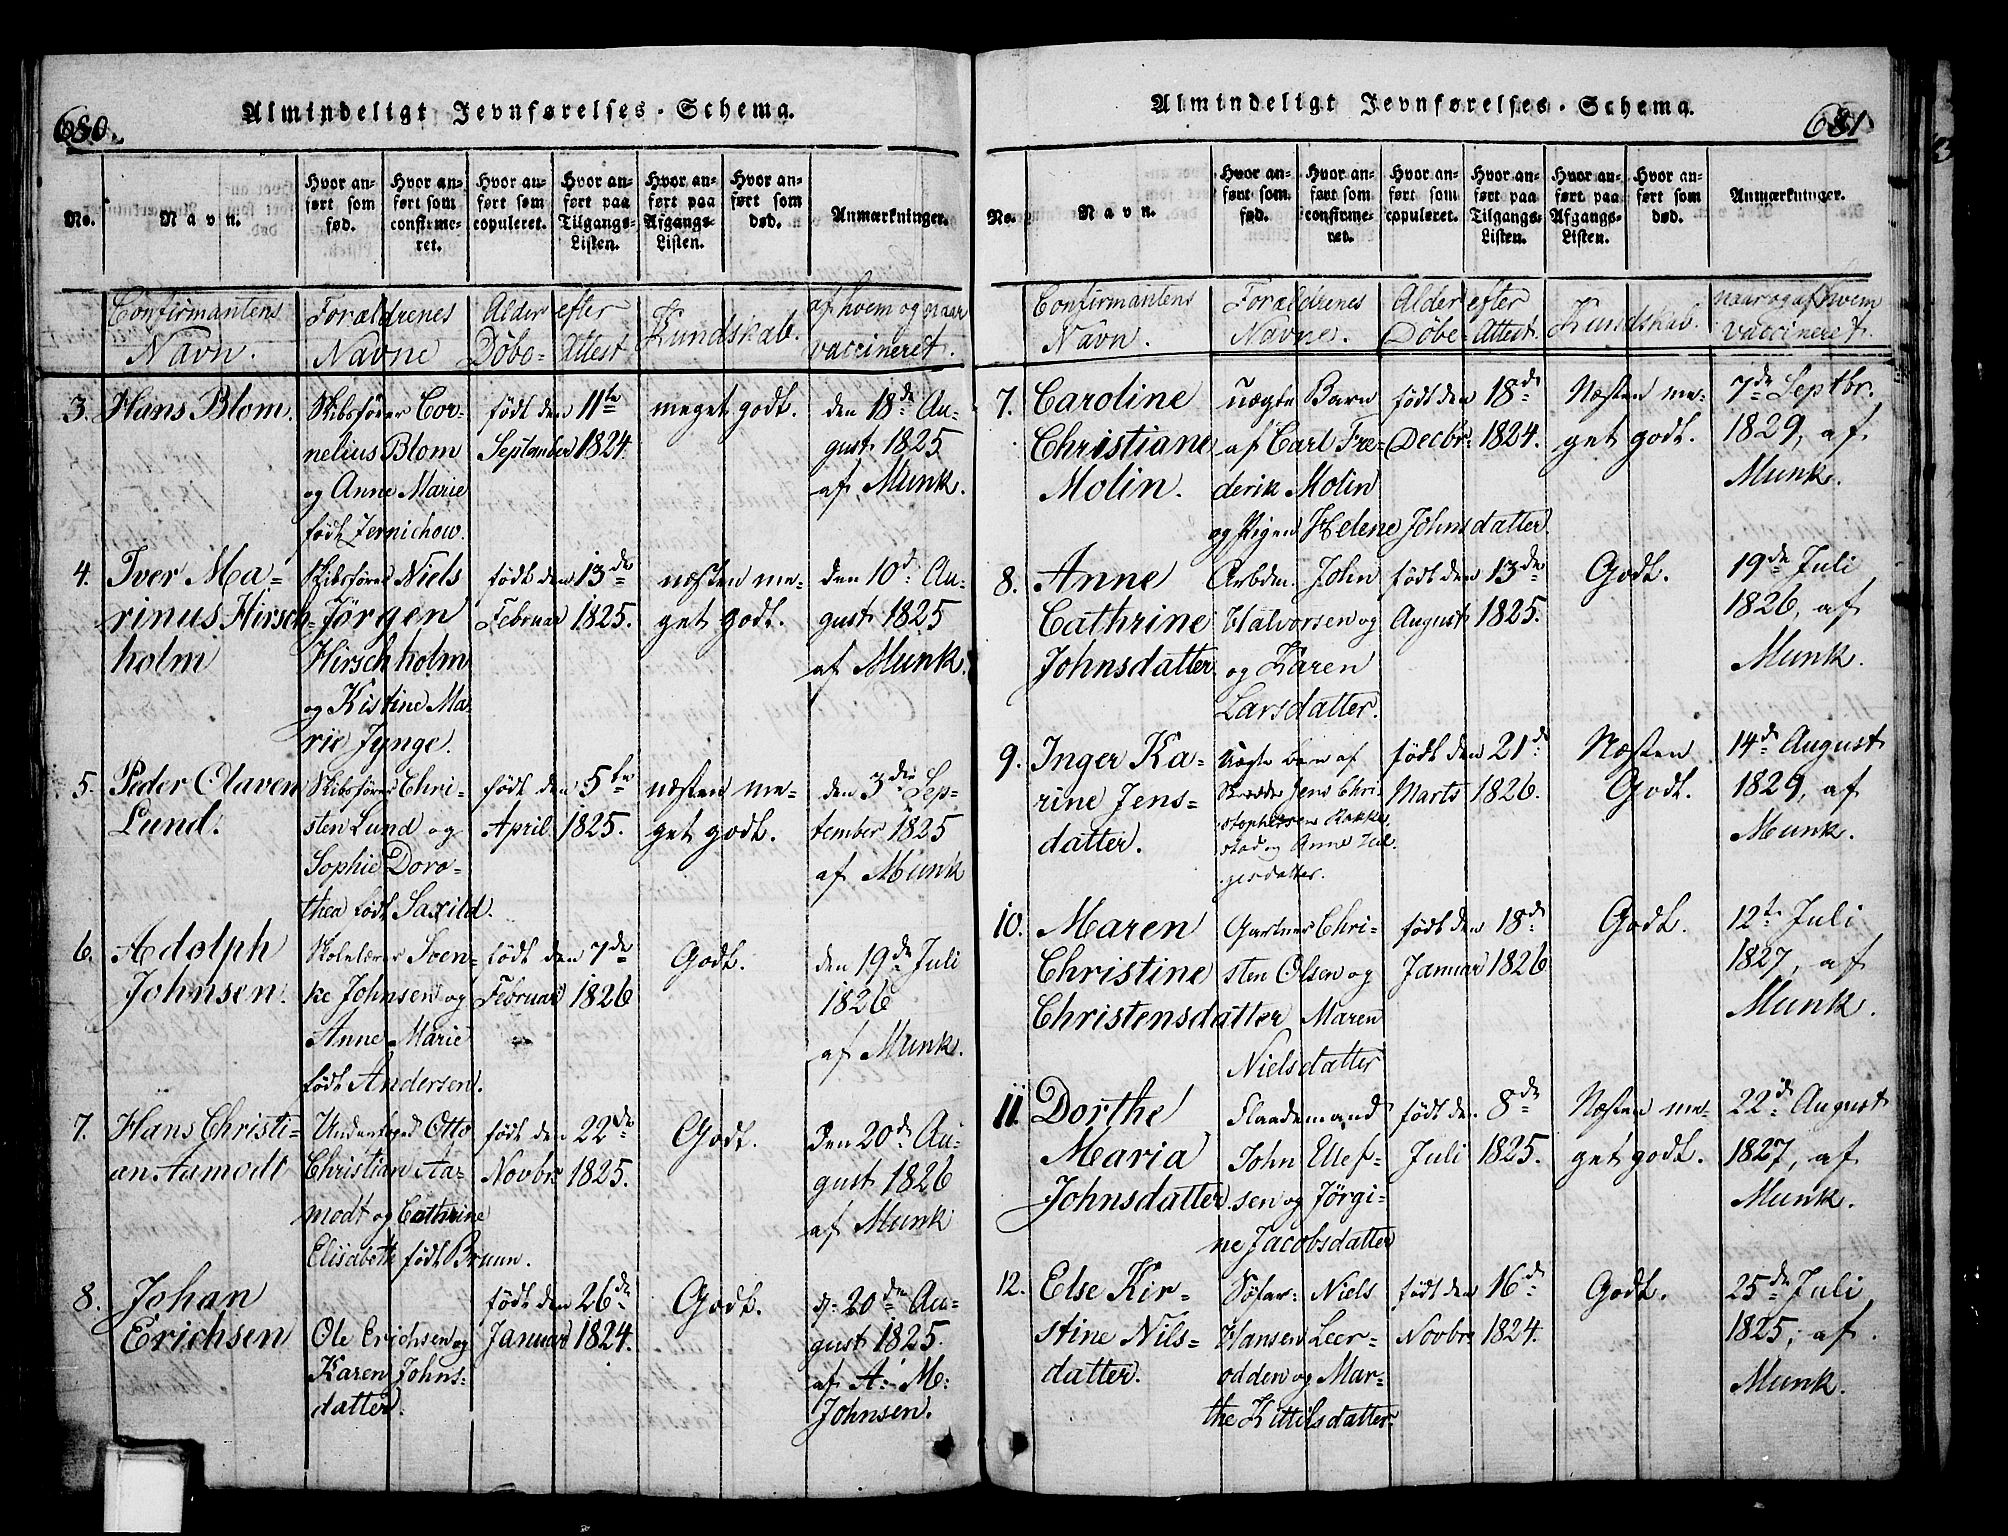 680.
Almindeligt Jevnførelses-Schema.
No.
Navn.
Hvor anført som fød.
Hvor anført som confirmeret.
Hvor anført som copuleret.
Hvor anført paa Tilgangs-Listen.
Hvor anført paa Afgangs-Listen.
Hvor anført som død.
Anmærkninger.
Confirmantens Navn.
Forældrenes Navne
Alder efter Døbe-Attest
Kundskab.
af hvem og naar vaccineret.
3. Hans Blom.
Skibsfører Cor-
nelius Blom
og Anne Marie
født Jernichow.
født den 11te
September 1824.
meget godt.
den 18de Au-
gust 1825
af Munk.
4. Iver Ma-
rinus Hirsch-
holm
Skibsfører Niels
Jørgen
Hirschholm
og Kistine Ma-
rie Jynge.
født den 13de
Februar 1825.
næsten me-
get godt.
den 10d Au-
gust 1825
af Munk.
5. Peder Olaven
Lund.
Skibsfører Chri-
sten Lund og
Sophie Doro-
thea født Saxild.
født den 5te
April 1825.
næsten me-
get godt.
den 3die Sep-
tember 1825
af Munk
6. Adolph
Johnsen.
Skolelærer Sven-
ke Johnsen og
Anne Marie
født Andersen.
født den 7de
Februar 1826
Godt.
den 19de Juli
1826
af Munk.
7. Hans Christi-
an Aamodt
Underfoged Otto
Christian Aa-
modt og Cathrine
Elisabeth født Bruun.
født den 22de
Novbr 1825.
Godt.
den 20de Au-
gust 1826
af Munk
8. Johan
Erichsen
Ole Erichsen og
Karen Johns-
datter.
født den 26de
Januar 1824.
Godt.
d: 20de Au-
gust 1825.
af A: M:
Johnsen.
681
Almindeligt Jevnførelses-Schema.
No.
Navn.
Hvor anført som fød.
Hvor anført som confirmeret.
Hvor anført som copuleret.
Hvor anført paa Tilgangs-Listen.
Hvor anført paa Afgangs-Listen.
Hvor anført som død.
Anmærkninger.
Confirmantens Navn.
Forældrenes Navne.
Alder efter Døbe-Attest.
Kundskab.
naar og af hvem vaccineret.
7. Caroline
Christiane
Molin.
uægte Barn
af Carl Fre-
derik Molin
og Pigen Helene Johnsdatter.
født den 18de
Decbr: 1824.
Næsten me-
get godt.
7de Septbr.
1829, af
Munk.
8. Anne
Cathrine
Johnsdatter
Arbdm. John
Halvorsen og
og Karen
Larsdatter.
født den 13de
August 1825.
Godt.
19de Juli
1826, af
Munk.
9. Inger Ka-
rine Jens-
datter.
Uægte Barn af
Skrædder Jens Chri-
stophersen Rokke-
stad og Anne Hel-
gesdatter.
født den 21de
Marts 1826.
Næsten
Godt.
14de August
1829, af
Munk.
10. Maren
Christine
Christensdatter
Gartner Chri-
sten Olsen og
Maren
Nielsdatter
født den 18de
Januar 1826
Godt.
12te Juli
1827, af
Munk.
11. Dorthe
Maria
Johnsdatter
Flaademand
John Ellef-
sen og Jørgi-
ne Jacobsdatter
født den 8de
Juli 1825.
Næsten me-
get godt.
22de August
1827, af
Munk.
12. Else Kir-
stine Nils-
datter.
Søfar- Niels
Hansen Leer-
odden og Mar-
the Kittilsdatter.
født den 16de
Novbr 1824.
Godt.
25de Juli
1825, af
Munk.